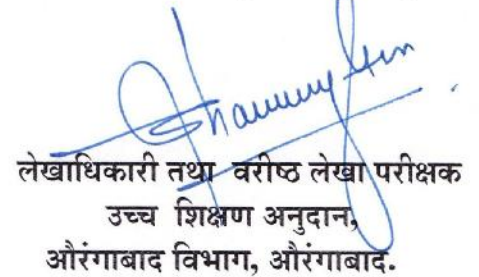 लेखाधिकारी तथा वरीष्ठ लेखा परीक्षक
उच्च शिक्षण अनुदान,
औरंगाबाद विभाग, औरंगाबाद.